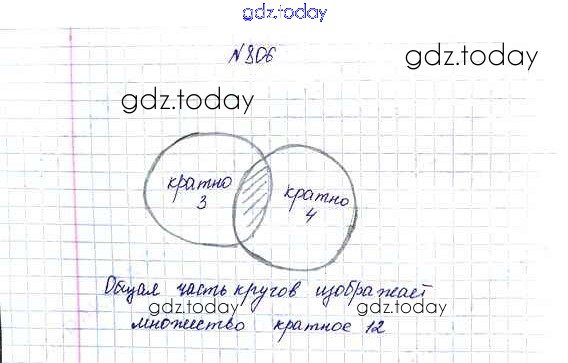 gdz.today
№806
gdz.today
gdz.today
кратно
3
кратно
4
Общая часть кругов изображает
gdz.today
gdz.today
множество кратное 12